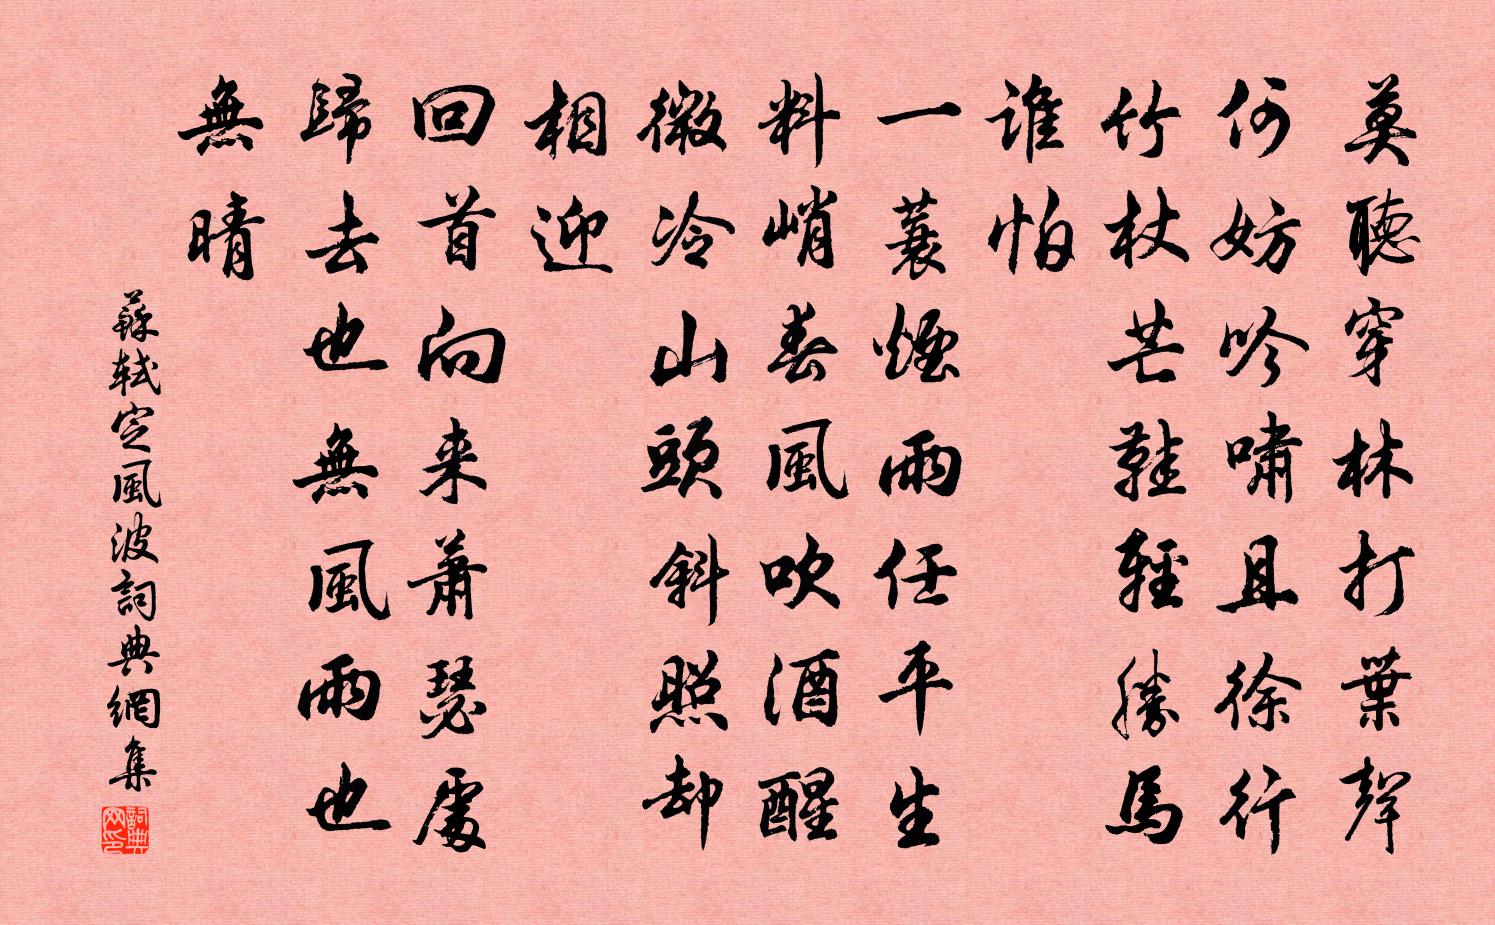 莫聽穿林打葉聲
何妨吟嘯且徐行
竹杖芒鞋輕勝馬
誰怕
一蓑煙雨任平生
料峭春風吹酒醒
微冷山頭斜照却
相迎
回首向来蕭瑟處
歸去也無風雨也
無晴
蘇軾定風波詞典網集
詞典网印